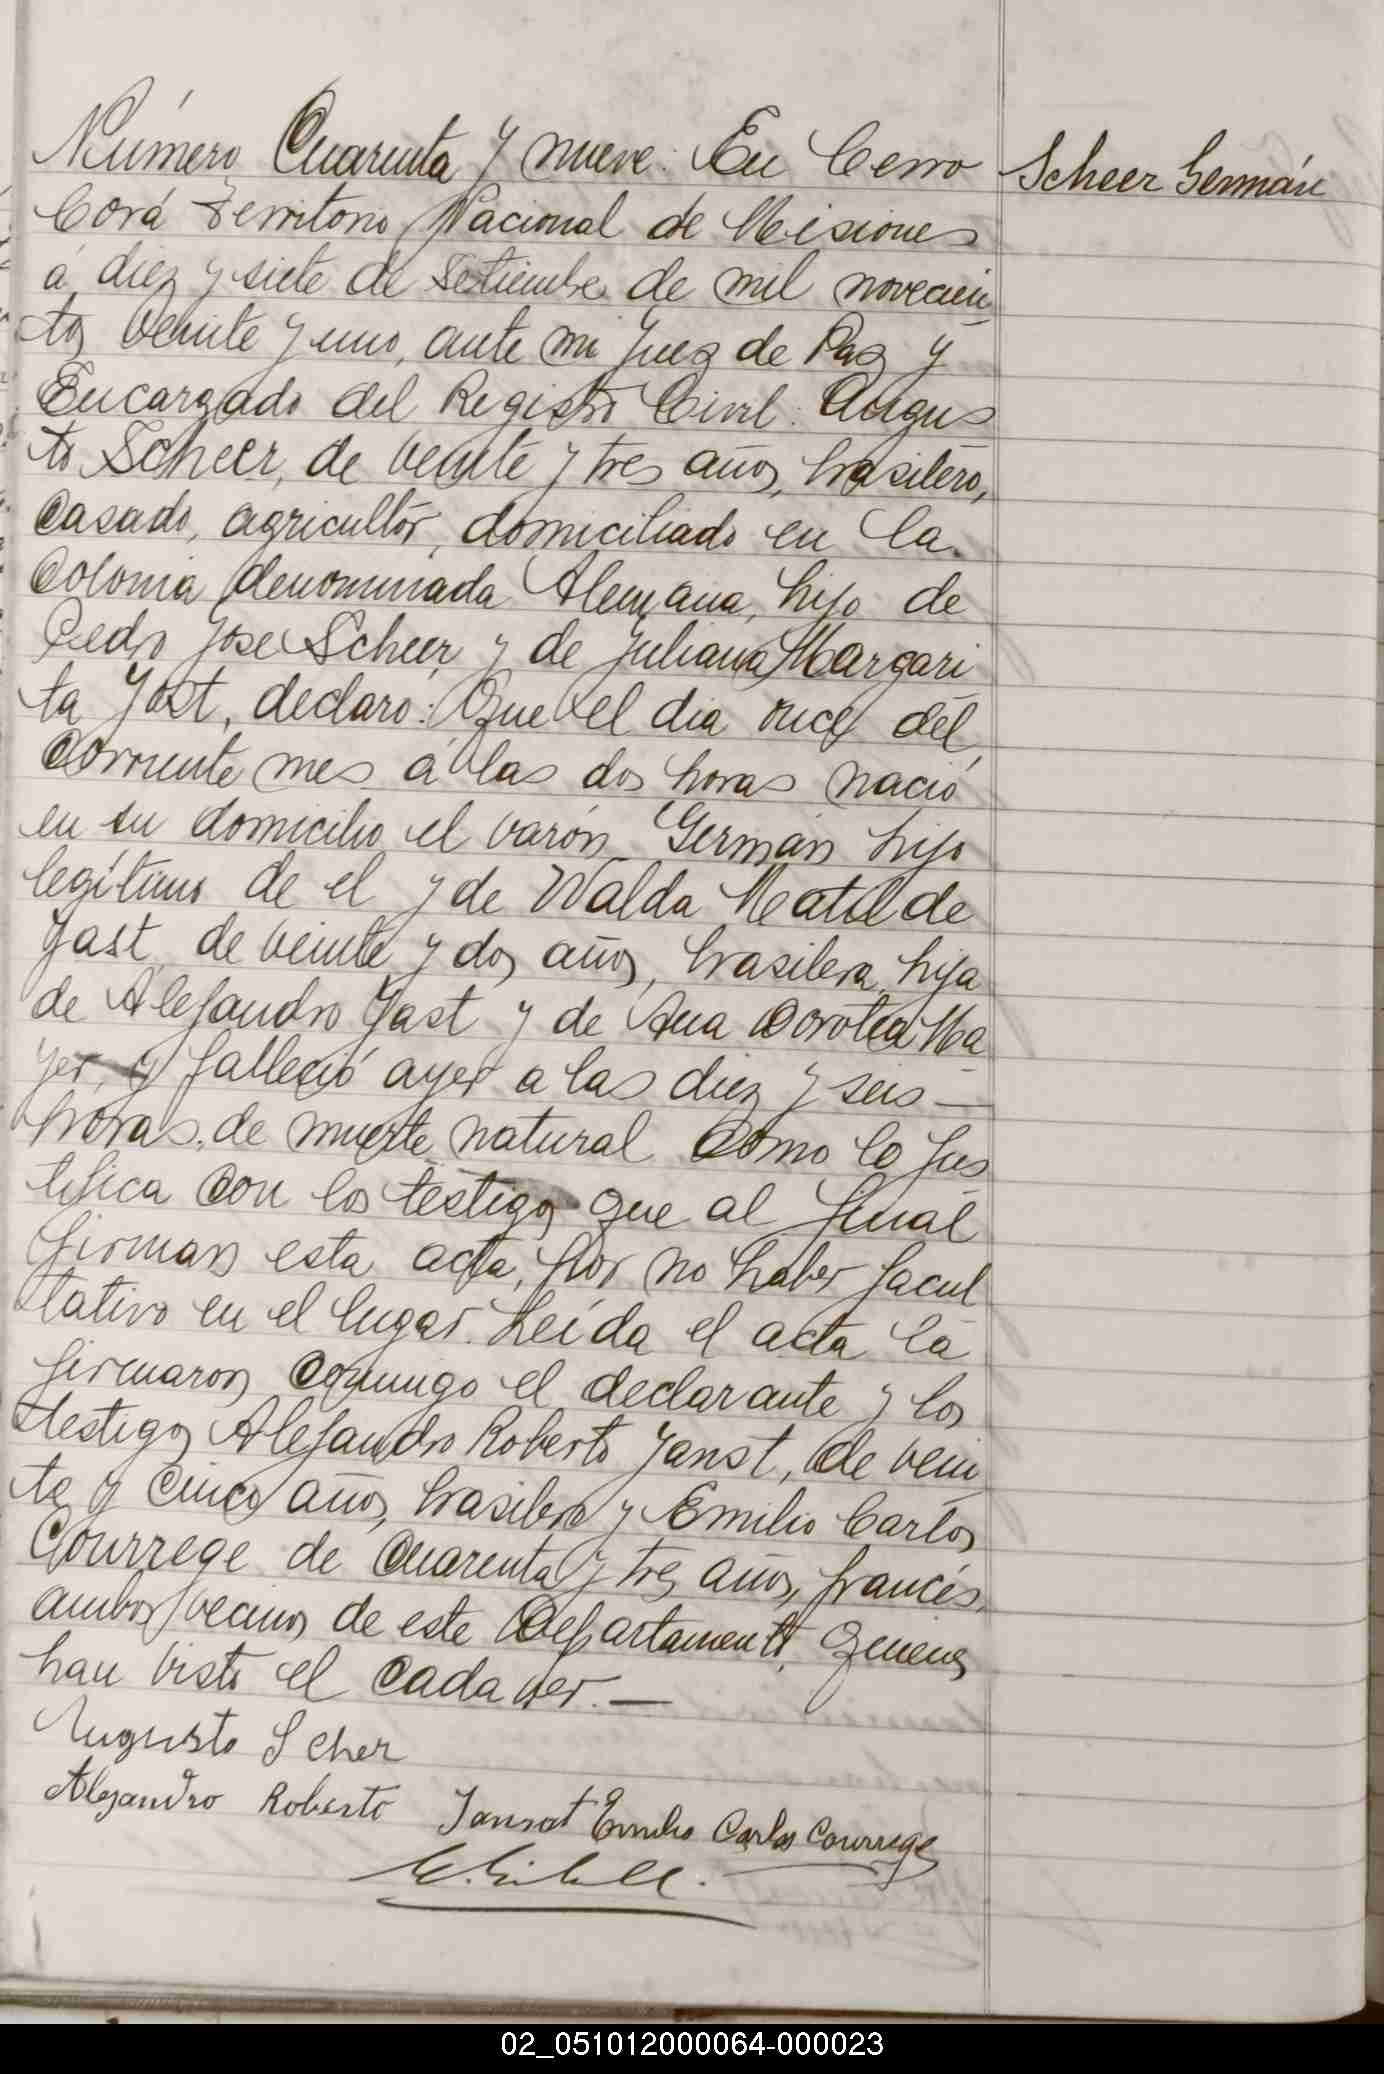 Número Cuarenta y nueve: En Cerro
Scheer Germán
Corá Territorio Nacional de Misiones
á diez y siete de Setiembre de mil novecien
tos veinte y uno, ante mi Juez de Paz y
Encargado del Registro Civil: Augus
to Scheer, de veinte y tres años, brasilero,
casado, agricultor, domiciliado en la
Colonia denominada Alemana, hijo de
Pedro Jose Scheer y de Juliana Margari
ta Jost, declaro: Que el dia once del
corriente mes á las dos horas nació
en su domicilio el varón Germán hijo
legítimo de el y de Walda Matilde
Jast, de veinte y dos años, brasilera, hija
de Alejandro Jast y de Ana Dorotea Ma
yer, y falleció ayer a las diez y seis —
horas, de muerte natural como lo jus
tifica con los testigos que al final
firman esta acta, por no haber facul
tativo en el lugar. Leída el acta la
firmaron conmigo el declarante y los
testigos Alejandro Roberto Janst, de vein
te y cinco años, brasilero y Emilio Carlos
Courrege de cuarenta y tres años, francés,
ambos vecinos de este Departamento, quienes
han visto el cadaver. —
Augusto Scher
Alejandro Roberto Jansot Emilio Carlos Courrege
02_051012000064-000023